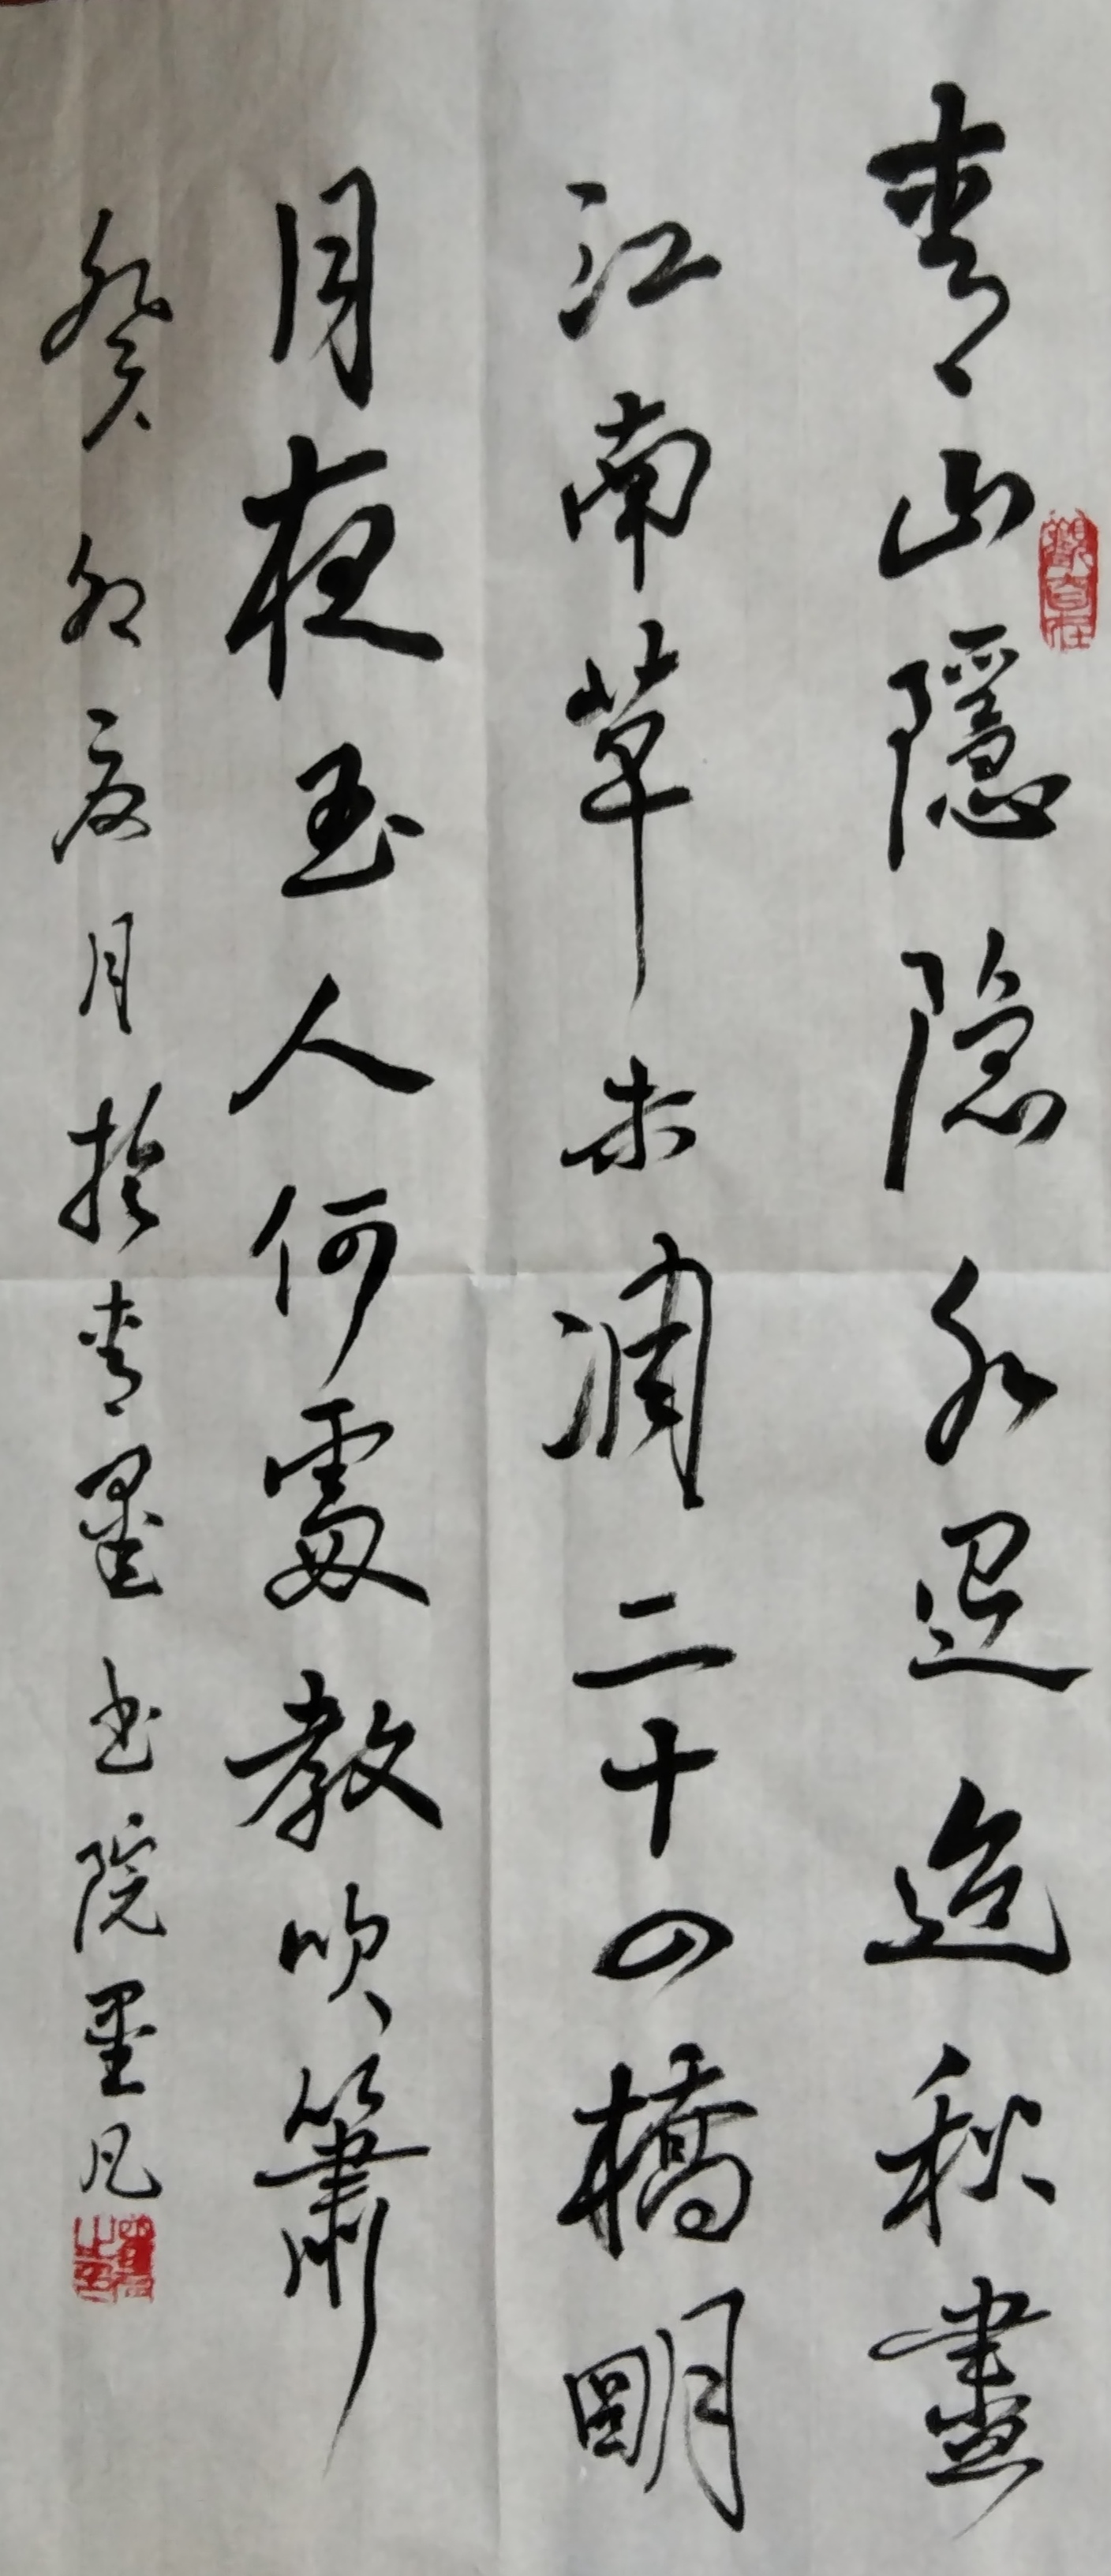 青山隱隐水迢迢秋盡
江南草未凋二十四橋明
月夜玉人何處教吹簫
癸卯夏月於青墨书院墨凡
觀自在